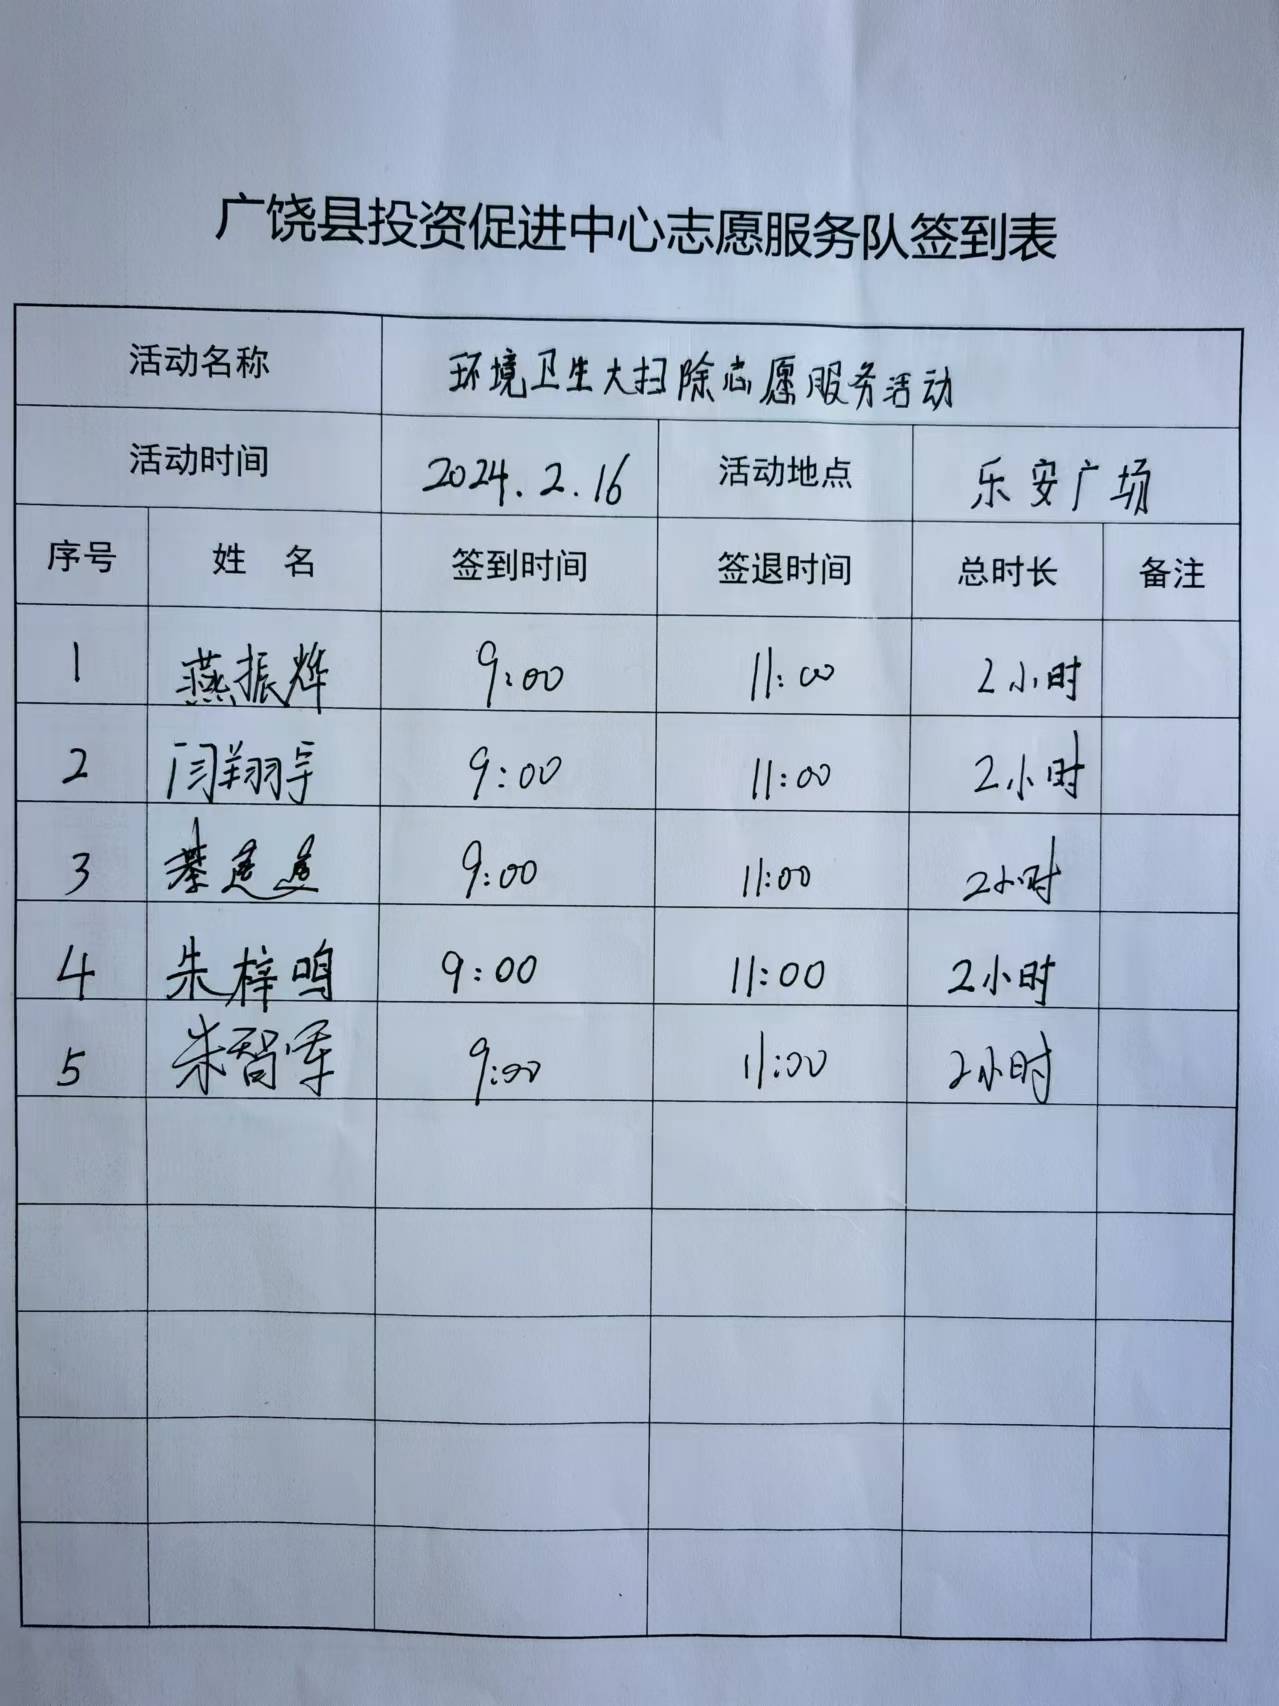 广饶县投资促进中心志愿服务队签到表
活动名称 环境卫生大扫除志愿服务活动
活动时间 2024.2.16 活动地点 乐安广场
序号 姓 名 签到时间 签退时间 总时长 备注
1 燕振烨 9:00 11:00 2小时
2 闫翔宇 9:00 11:00 2小时
3 9:00 11:00 2小时
4 朱梓鸣 9:00 11:00 2小时
5 朱智军 9:00 11:00 2小时